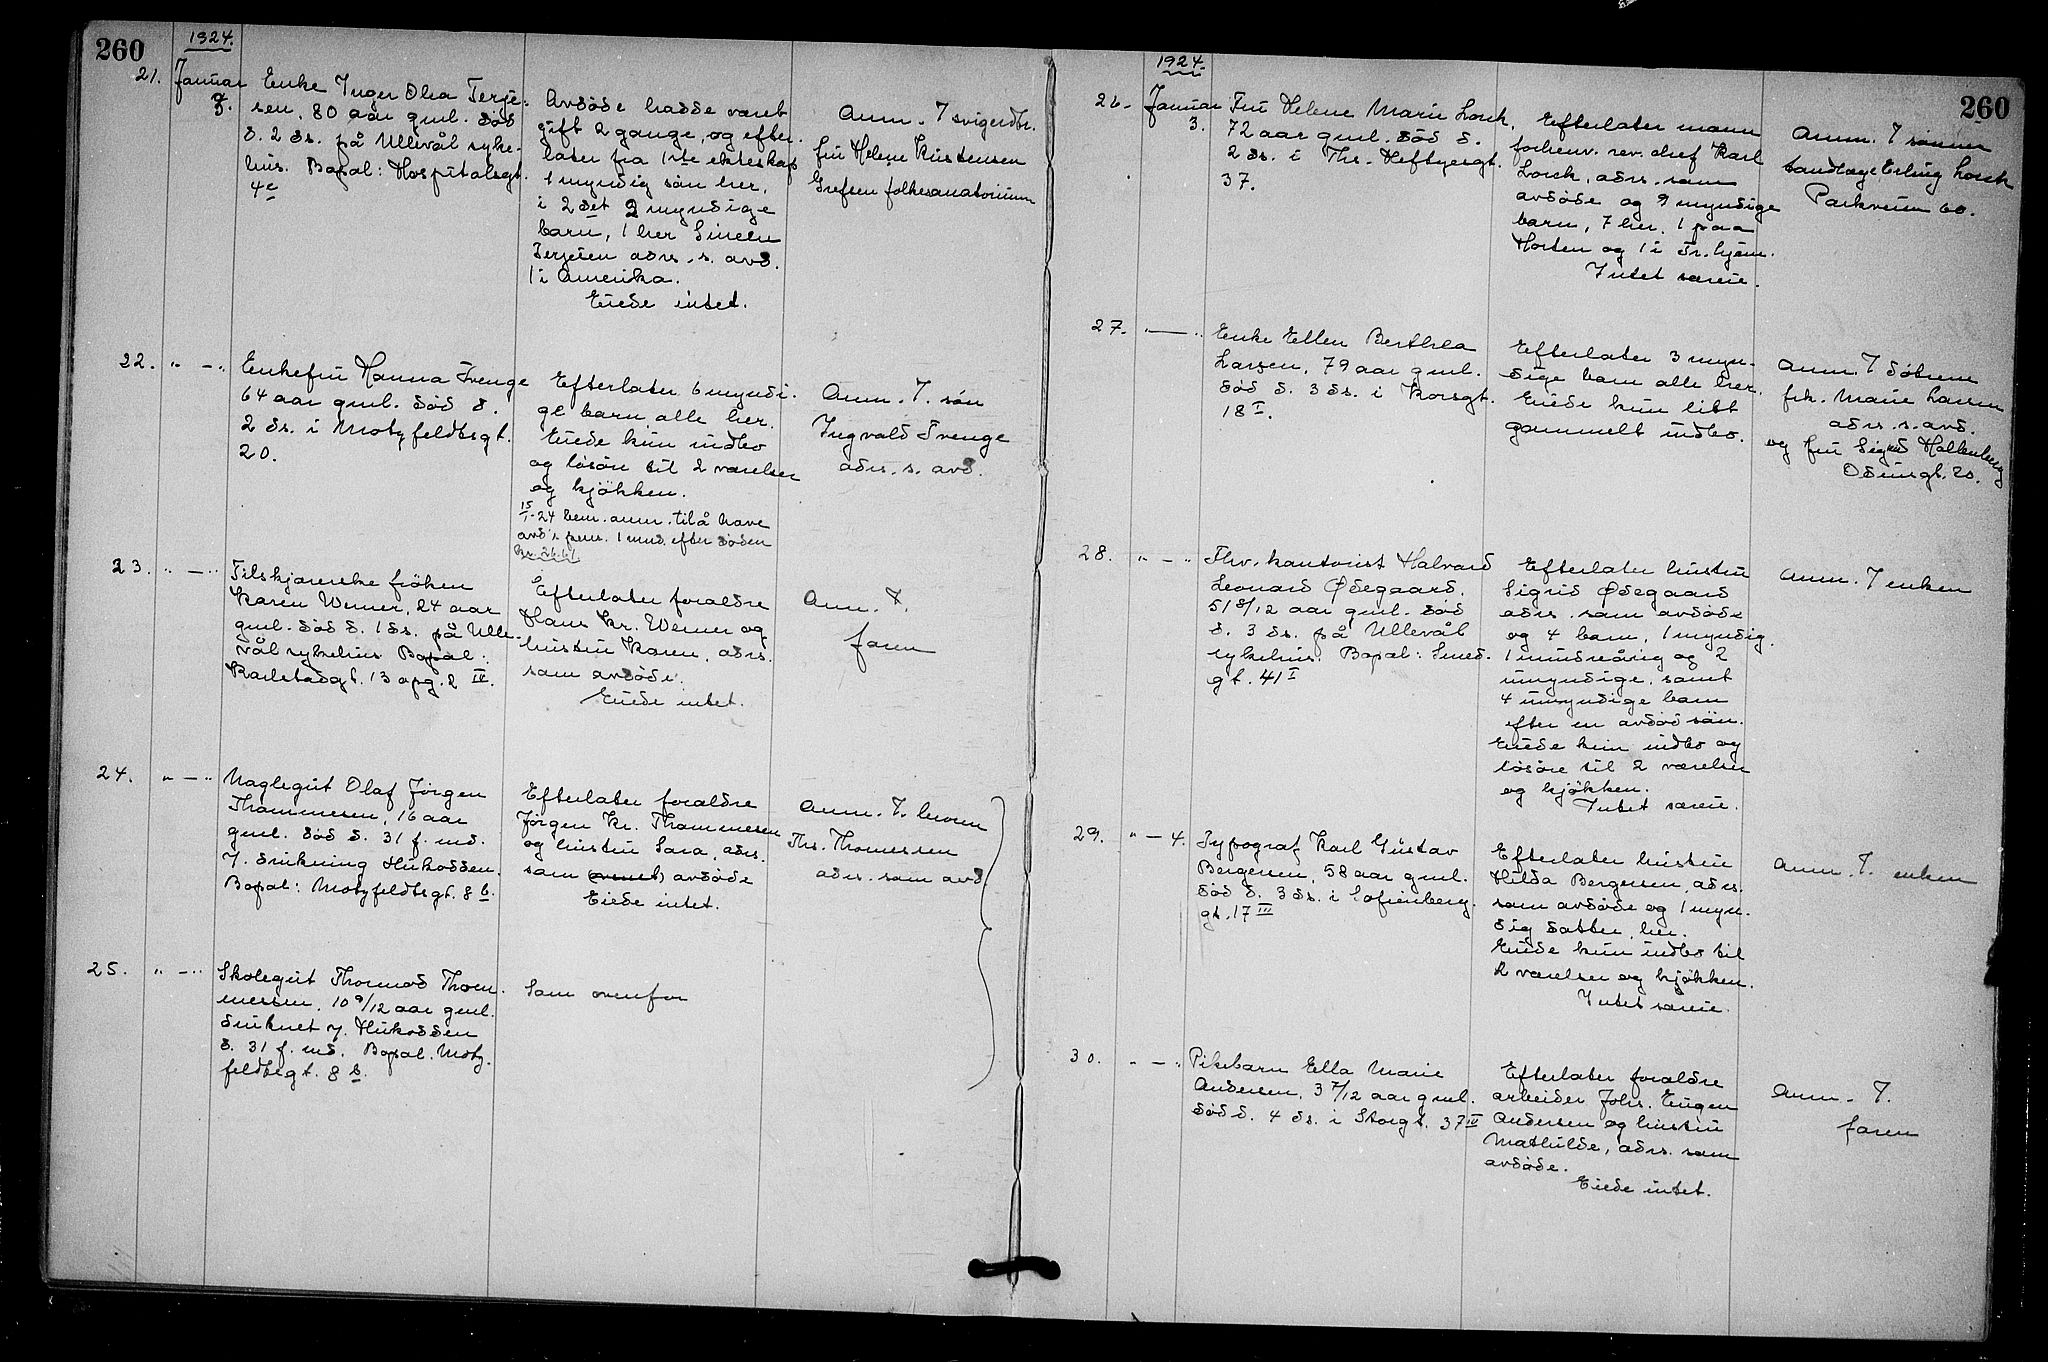 260
1924.
21. Januar
3.
Enke Inger Olea Terje-
sen, 80 aar gml. død
d. 2 ds. på Ullevål syke-
hus. Bopæl: Hospitalsgt.
4c
Avdøde hadde været
gift 2 gange, og efter-
later fra 1ste ekteskap
1 myndig søn her,
i 2det 2 myndige
barn, 1 her
Terjesen adrs. s. avd.
1 i Amerika.
Eiede intet.
Anm. 7 svigerdtr.
fru Helene Kristensen
Grefsen folkesanatorium
22. " — "
Enkefru Hanna Trenge
64 aar gml. død d.
2 ds. i Motzfeldtsgt.
20.
Efterlater 6 myndi-
ge barn, alle her.
Eiede kun indbo
og løsøre til 2 værelser
og kjøkken.
15/1-24 bem. anm. til å have
avd's pens. 1 mnd. efter døden
kr. 26.61
Anm. 7. søn
Ingvald Trenge
adrs. s. avd.
23. " — "
Tilskjærerske frøken
Karen Werner, 24 aar
gml. død d. 1 ds. på Ulle-
vål sykehus Bopæl:
Karlstadgt. 13 opg. 2 IV.
Efterlater forældre
Hans Kr. Werner og
hustru Karen, adrs.
som avdøde.
Eiede intet.
Anm. 7.
faren
24. " — "
Naglegut Olaf Jørgen
Thommesen, 16 aar
gml. død d. 31 f. md.
v. drukning Hukodden.
Bopæl: Motzfeldtsgt. 8 b.
Efterlater forældre
Jørgen Kr. Thommesen
og hustru Sara, adrs.
som avdøde
Eiede intet.
Anm. 7. broren
Ths. Thomessen
adrs. som avd.
25. " — "
Skolegut Thormod Thom-
messen, 10 9/12 aar gml.
druknet v. Hukodden
d. 31 f. md. Bopæl. Motz-
feldtsgt. 8 b.
Som ovenfor
1924.
260
26. Januar
3.
Fru Helene Marie Lorck,
72 aar gml. død d.
2 ds. i Ths. Heftyesgt.
37.
Efterlater mann
forhenv. rev. chef Karl
Lorck, adrs. som
avdøde og 9 myndige
barn, 7 her, 1 paa
Horten og 1 i Tr.hjem.
Intet særeie.
Anm. 7 sønnen
tandlæge Erling Lorck
Parkveien 60.
27. " — "
Enke Ellen Berthea
Larsen, 79 aar gml.
død d. 3 ds. i Korsgt.
18 I.
Efterlater 3 myn-
dige barn alle her.
Eiede kun litt
gammelt indbo.
Anm. 7 døtrene
frk. Marie Larsen
adrs. s. avd.
og fru Sigrid Hallenberg
Odinsgt. 20.
28. " — "
Fhv. kontorist Halvard
Leonard Ødegaard.
51 8/12 aar gml. død
d. 3 ds. på Ullevål
sykehus. Bopæl: Smed-
gt. 41 I
Efterlater hustru
Sigrid Ødegaard
adrs. som avdøde
og 4 barn, 1 myndig.
1 mindreårig og 2
umyndige, samt
4 umyndige barn
efter en avdød søn.
Eiede kun indbo og
løsøre til 2 værelser
og kjøkken.
Intet særeie.
Anm. 7 enken
29. " — 4.
Typograf Karl Gustav
Bergersen, 58 aar gml.
død d. 3 ds. i Sofienberg-
gt. 17 III
Efterlater hustru
Hilda Bergersen, adrs.
som avdøde og 1 myn-
dig datter, her.
Eiede kun indbo til
2 værelser og kjøkken.
Intet særeie.
Anm. 7. enken
30. " — "
Pikebarn Ella Marie
Andersen, 3 7/12 aar gml.
død d. 4 ds. i Storgt. 37 IV
Efterlater forældre
arbeider Johs. Eugen
Andersen og hustru
Mathilde, adrs. som
avdøde.
Eiede intet.
Anm. 7.
faren